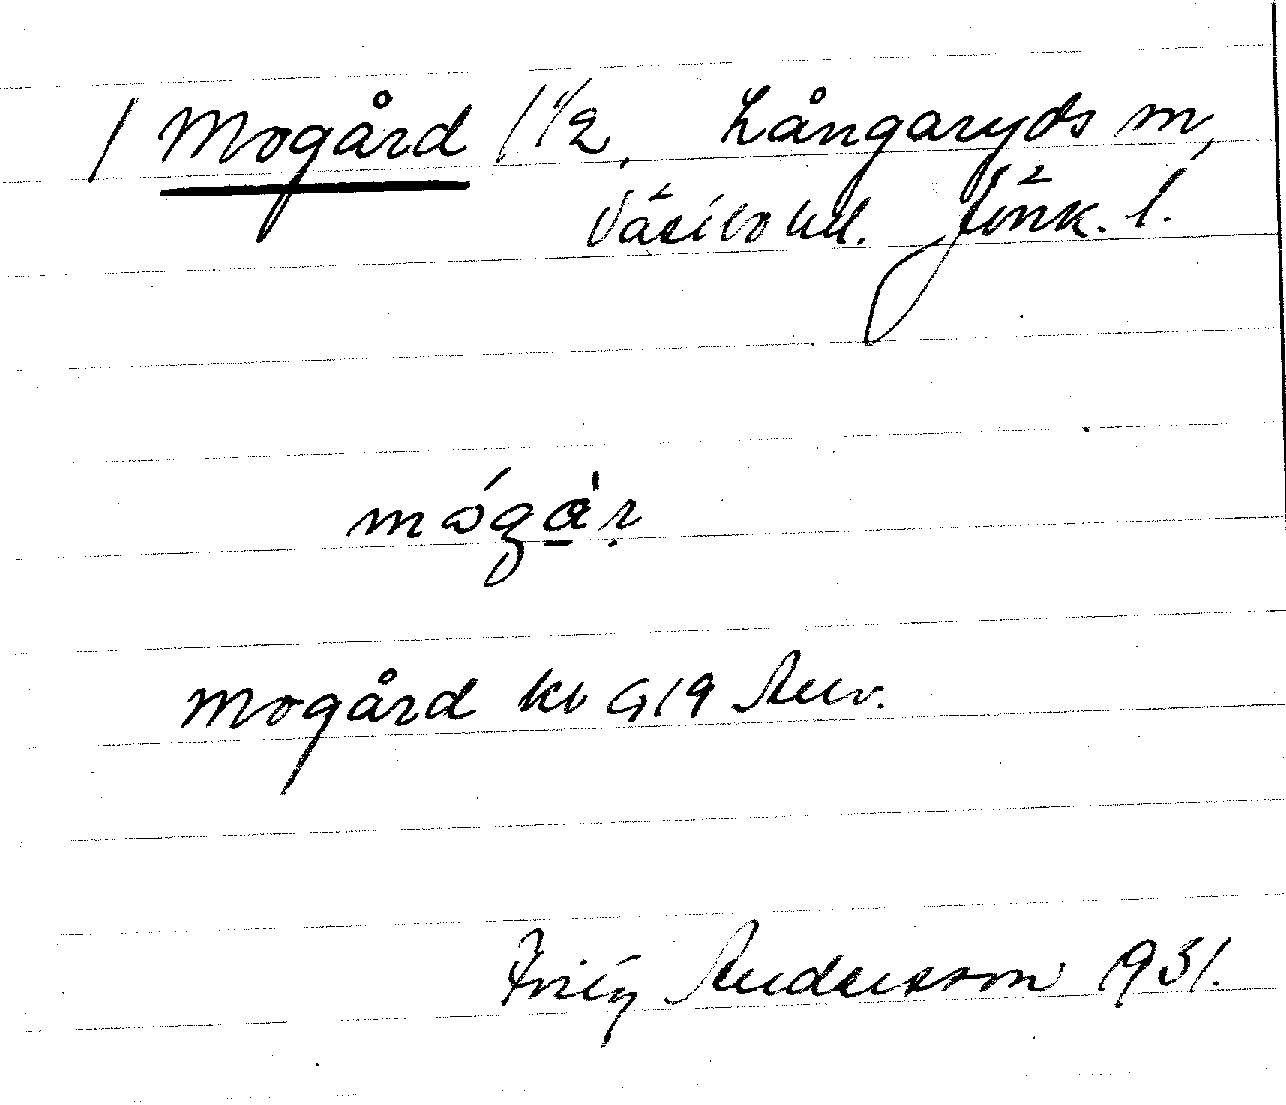 / Mogård / 1/2, Långaryds sn,
Västbo hd. Jönk. l.
mógàr
Mogård kb G19 Anv.
Frity Andersson 1931.